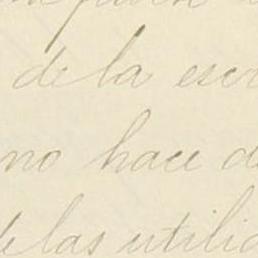 de la escri
no hace d
de las utilid